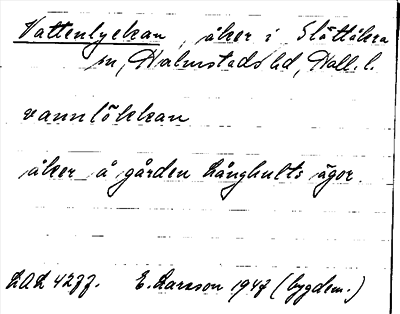 Vattenlyckan, åker i Slättåkra
sn, Halmstads hd, Hall. l.
vannlökkan
åker å gården Långhults ägor.
DAL 4277. E. Larsson 1947 (bygdem.)